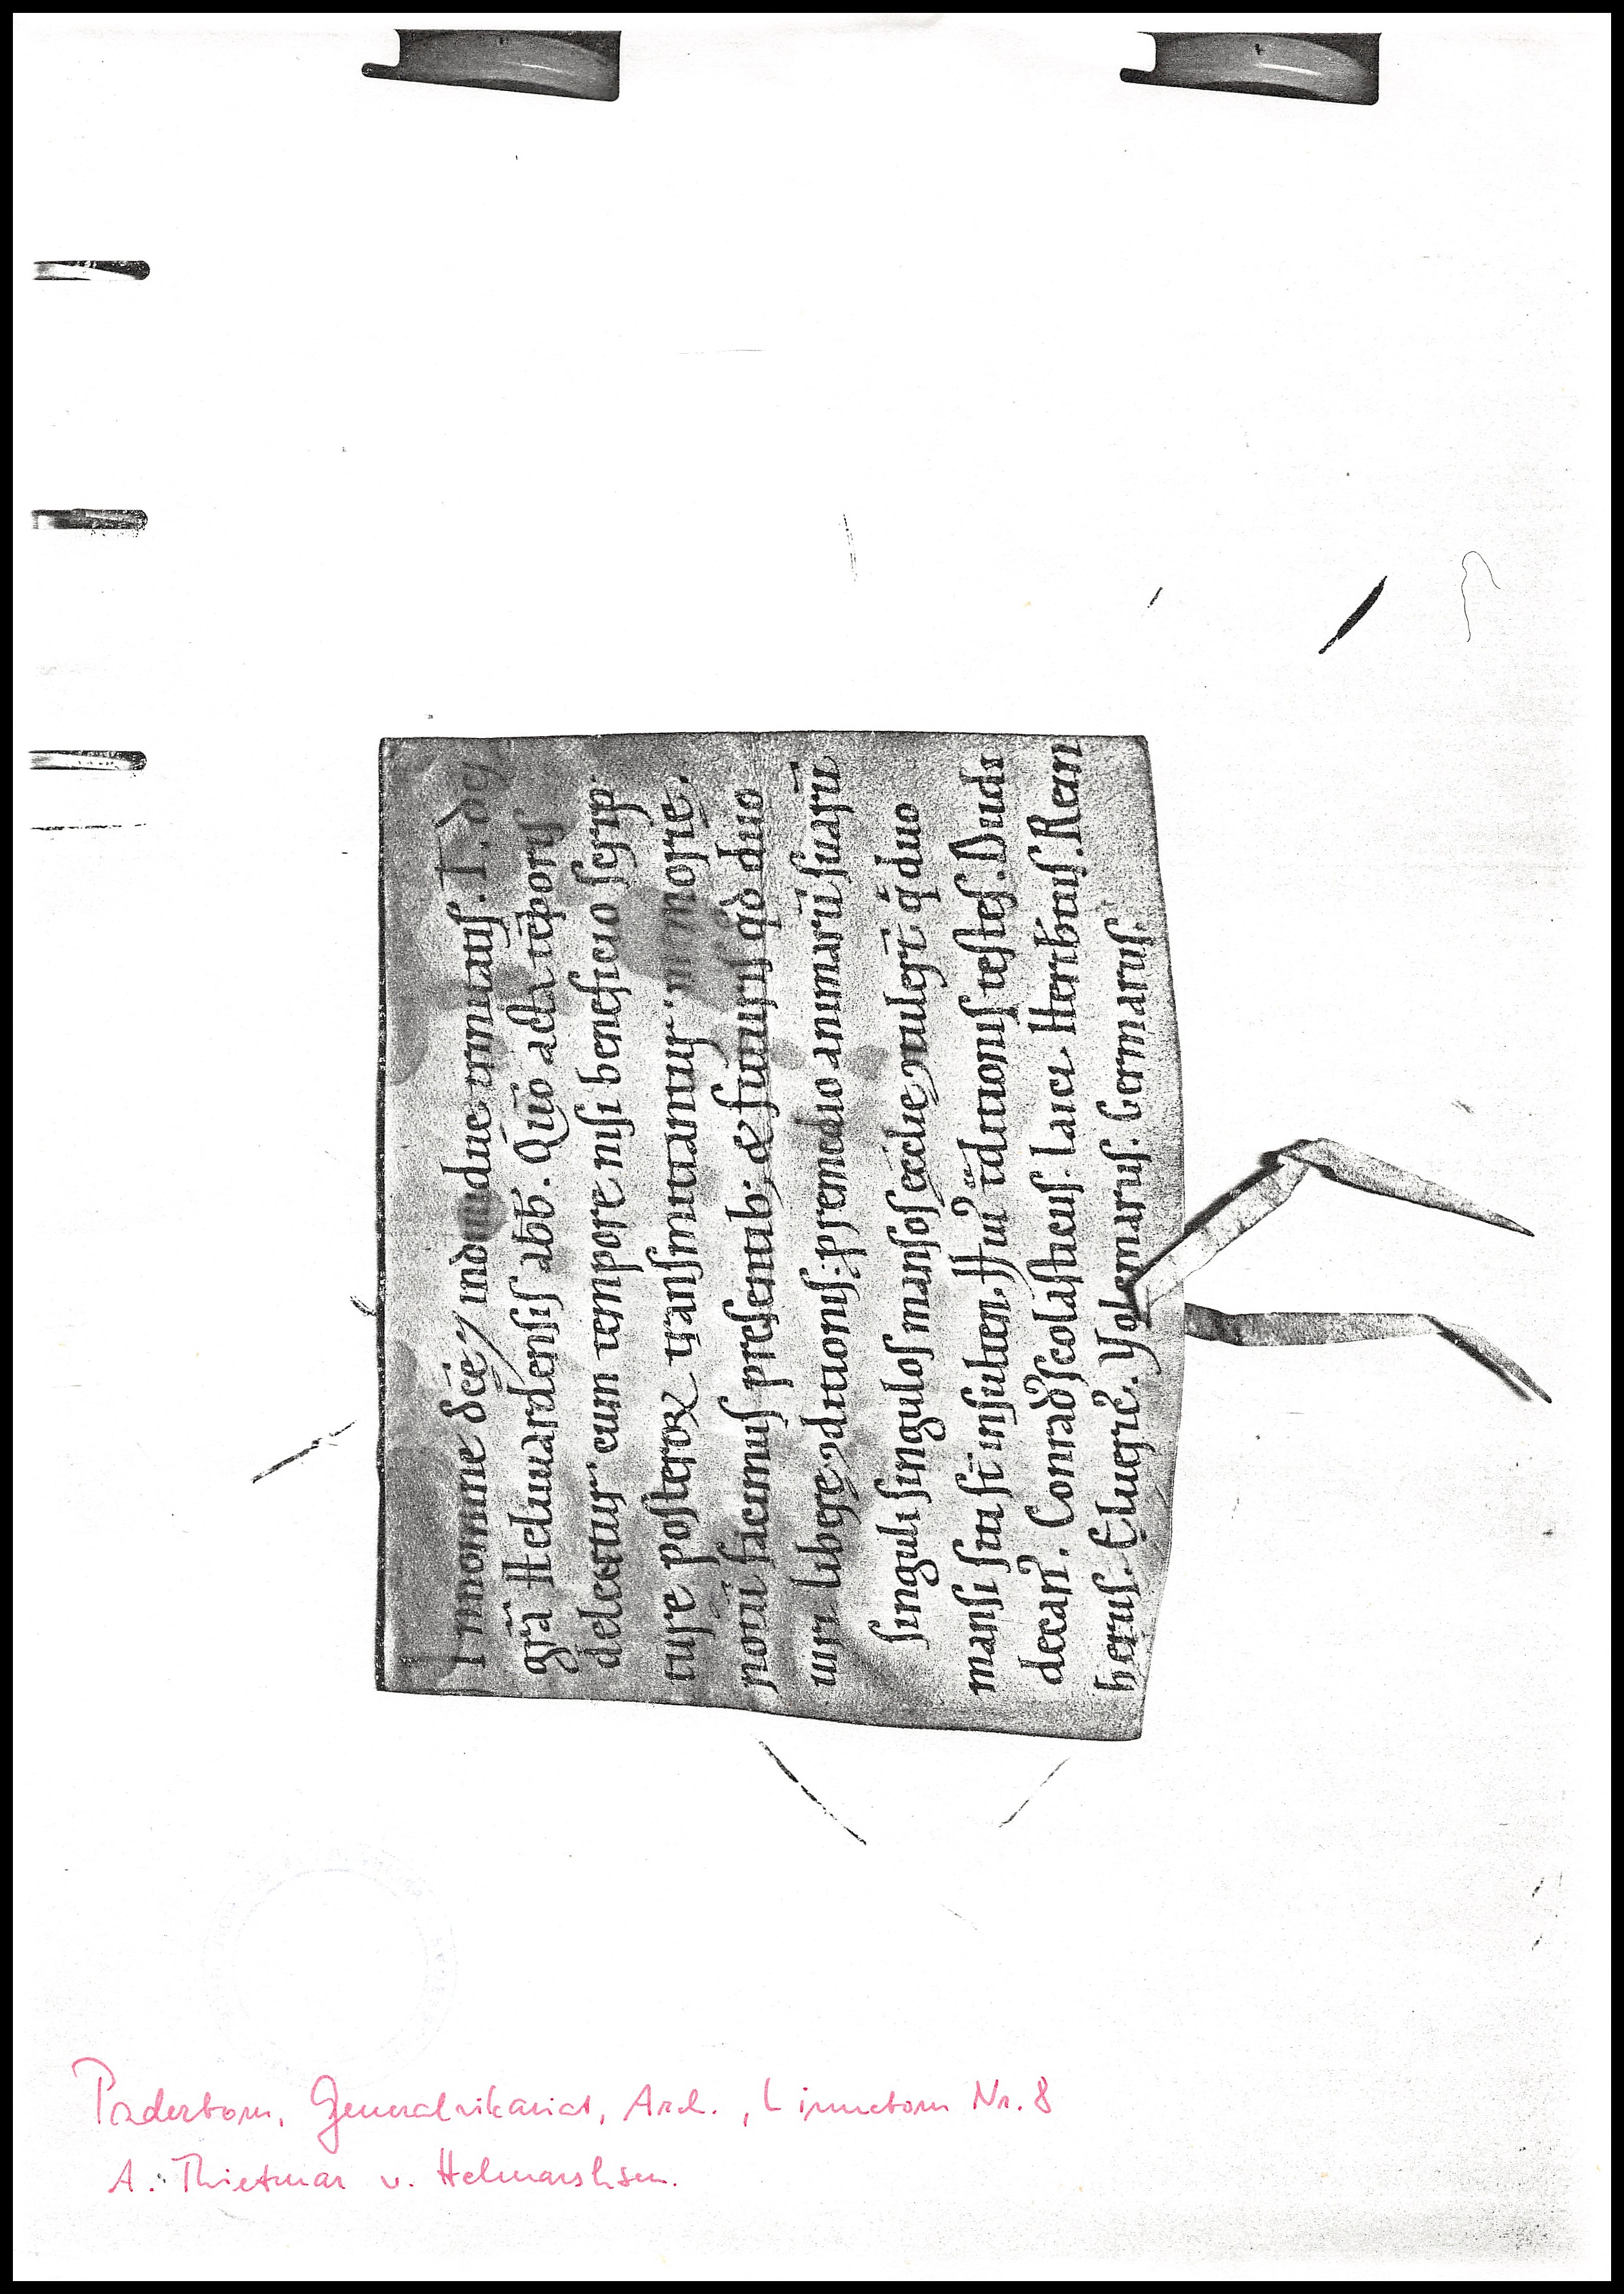 In nomine scē & individue trinitatis. T. dei
grā Heluuardensis abb. Qm̄ acta tēporis
delectatur cum tempore nisi beneficio scrip
ture posteroꝝ transmittantur memorie.
notū facimus presentib; & futuris qd̄ duo
uiri libere ꝯditionis: p remedio animarū suarū
singuli singulos mansos ecclie ꝯtulerūt q̄ duo
mansi siti st̄ in suhten. Hui' ꝯditionis testes. Dudo
decan'. Conrad' scolasticus. laici Heribtus. Rein
herus. Elueric'. Volcmarus. Germarus.
Paderborn, Generalvikariat, Arch., Iburg Nr. 8
A. Thietmar v. Helmarshsn.